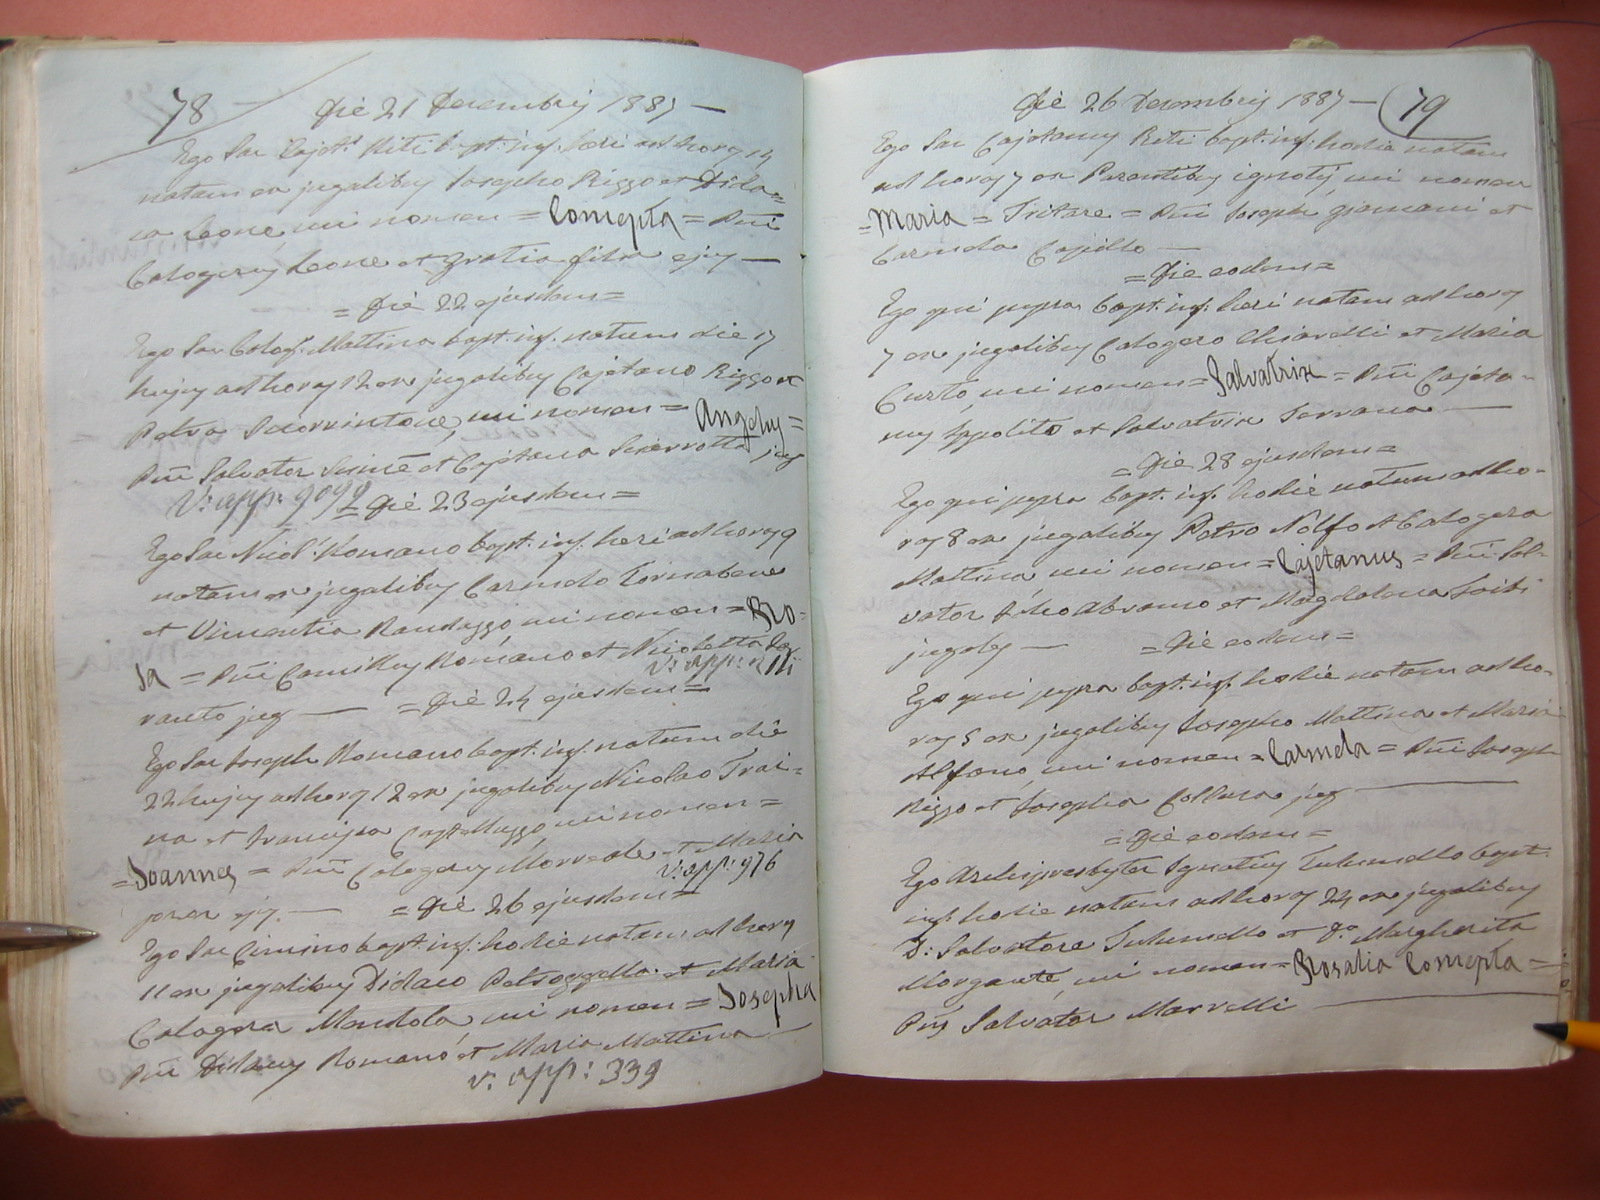 78
Diè 21 Decembrij 1887 —
Ego Sac Cajet. Riti bapt. inf. heri ad horaz 14
natam ex jugalibuz Josepho Rizzo et Dida-
ca Leone, cui nomen = Concepta = Pni
Calogeruz Leone et Gratia filia ejuz —
= Diè 22 ejusdem =
Ego Sac Calog. Mattina bapt. inf. natum die 17
hujuz ad horaz 12 ex jugalibuz Cajetano Rizzo et
Petra, cui nomen = Angeluz =
Pni Salvator et Cajetana Sciarrotta jug
V: app: 9092
= Diè 23 ejusdem =
Ego Sac Nicol. Romano bapt. inf. heri ad horaz 9
natam ex jugalibuz Carmelo Tornabene
et Vincentia Randazzo, cui nomen = Ro-
sa = Pni Camilluz Romano et Nicoletta
V: app:
jug — = Diè 24 ejusdem =
Ego Sac Joseph Romano bapt. inf. natum diè
22 hujuz ad horaz 12 ex jugalibuz Nicolao Trai-
na et Francisca, cui nomen =
= Joannes = Pni Calogeruz Morreale et Maria
V: app: 976
ejz. — = Diè 26 ejusdem =
Ego Sac Cimino bapt. inf. hodie natam ad horaz
11 ex jugalibuz Didaco Petrozzella et Maria
Calogera Mendola, cui nomen = Josepha
Pni Didacuz Romano et Maria Mattina —
V: app: 339
Diè 26 Decembrij 1887 — 79
Ego Sac Cajetanuz Riti bapt. inf. hodie natam
ad horaz 7 ex Parentibuz ignotiz, cui nomen
= Maria = Tritare = Pni Joseph et
Carmela —
= Diè eodem =
Ego qui supra bapt. inf. heri natam ad horaz
7 ex jugalibuz Calogero Chiarelli et Maria
Curto, cui nomen = Salvatrix = Pni Cajeta-
nuz Ippolito et Salvatrix Terrana —
= Diè 28 ejusdem =
Ego qui supra bapt. inf. hodie natum ad ho-
raz 8 ex jugalibuz Petro Nolfo et Calogera
Mattina, cui nomen = Cajetanus = Pni Sal-
vator Abramo et Magdalena
jugalez — = Diè eodem =
Ego qui supra bapt. inf. hodie natam ad ho-
raz 5 ex jugalibuz Josepho Mattina et Maria
Alfano, cui nomen = Carmela = Pni Joseph
Rizzo et Josepha Collura jug —
= Diè eodem =
Ego Archipresbyter Ignatiuz Tulumello bapt.
inf. hodie natam ad horaz 24 ex jugalibuz
D: Salvatore Tulumello et Da Margherita
Morgante, cui nomen = Rosalia Concepta =
Pnz Salvator Marrelli —